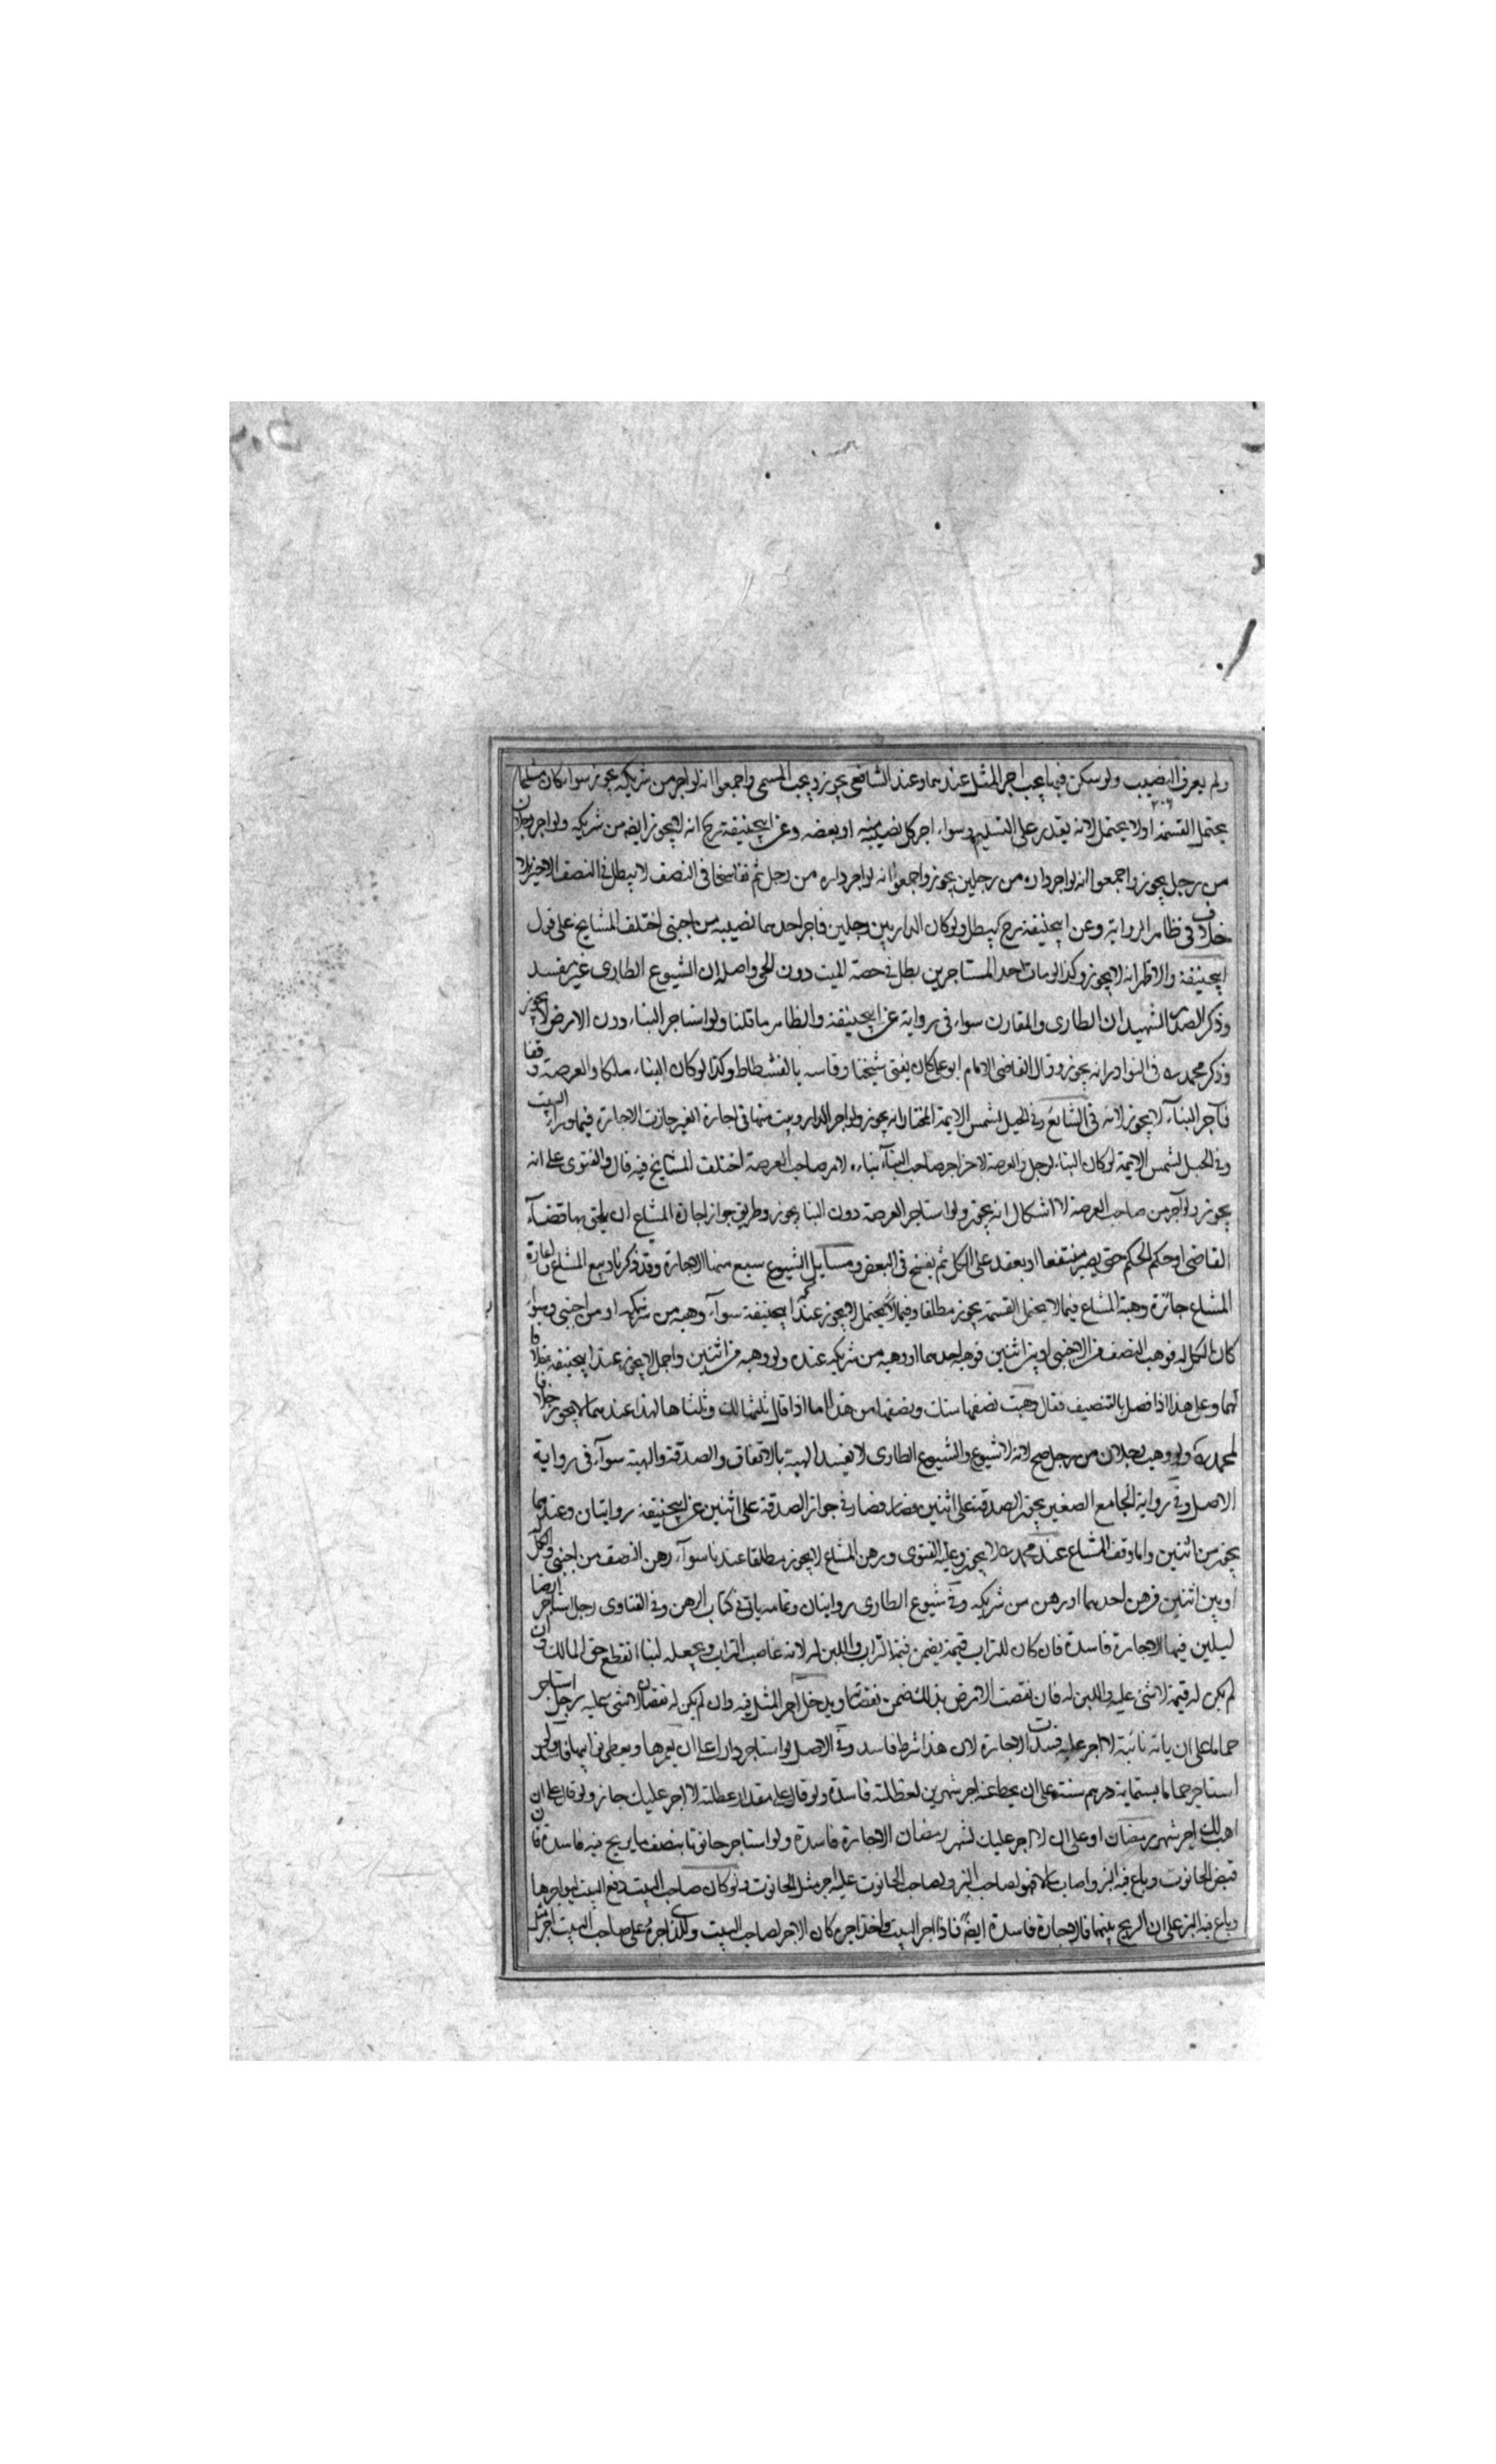 ولم يعرف النصيب ولو سكن فيها يجب اجر المثل عندهما وعند الشافعي يجوز ويجب المسمى واجمعوا انه لو اجر من شريكه يجوز سواء كان مشاعا
يحتمل القسمة اولا يحتمل لانه يقدر على التسليم وسواء اجر كل نصيبه منه او بعضه وعن ابيحنيفة رح انه لا يجوز ايضا من شريكه ولو اجر رجلان
من رجل يجوز واجمعوا انه لو اجر داره من رجلين يجوز واجمعوا انه لو اجر داره من رجل ثم تفاسخا في النصف لا يبطل في النصف الاخر بلا
خلاف في ظاهر الرواية وعن ابيحنيفة رح يبطل ولو كان الدار بين رجلين فاجر احدهما نصيبه من اجنبي اختلف المشايخ على قول
ابيحنيفة والاظهر انه لا يجوز وكذا لو مات احد المستاجرين بطل في حصة الميت دون الحي واصله ان الشيوع الطارى غير مفسد
وذكر الصدر الشهيد ان الطارى والمقارن سواء في رواية عن ابيحنيفة والظاهر ما قلنا ولو استاجر البناء دون الارض لا يجوز
وذكر محمد رح في النوادر انه يجوز وقال القاضي الامام ابو علي كان يفتي شيخنا وقاسه بالفسطاط وكذا لو كان البناء ملكا والعرصة وقفا
فآجر البناء لا يجوز لانه في الشايع وفي الحيل لشمس الايمة المختار انه يجوز ولو اجر الدار وبيت منها في اجارة الغير جازت الاجارة فيما وراء البيت
وفي الحيل لشمس الايمة لو كان البناء لرجل والعرصة لاخر اجر صاحب البناء بناءه لا من صاحب العرصة اختلف المشايخ فيه قال والفتوى على انه
يجوز ولو آجر من صاحب العرصة لا اشكال انه يجوز ولو استاجر العرصة دون البنا يجوز وطريق جواز اجارة المشاع ان يلحق بها قضاء
القاضي او حكم الحكم حتى يصير متفقا او يعقد على الكل ثم يفسخ في البعض ومسايل الشيوع سبع منها الاجارة وقد ذكرنا وبيع المشاع واعارة
المشاع جائزة وهبة المشاع فيما لا يحتمل القسمة يجوز مطلقا وفيما يحتمل لا يجوز عند ابيحنيفة سواء وهبه من شريكه او من اجنبي وسواء
كان الكل له فوهب النصف من الاجنبي او بين اثنين فوهب احدهما او وهبه من شريكه عنده ولو وهبه من اثنين واجمل لا يجوز عند ابيحنيفة خلافا
لهما وعلى هذا اذا فصل بالتنصيف فقال وهبت نصفها منك ونصفها من هذا اما اذا قال ثلثها لك وثلثاها لهذا عندهما لا يجوز خلافا
لمحمد رح ولو وهب رجلان من رجل صح لانه لا شيوع والشيوع الطارى لا يفسد الهبة بالاتفاق والصدقة والهبة سواء في رواية
الاصل وفي رواية الجامع الصغير يجوز الصدقة على اثنين فصار في جواز الصدقة على اثنين عن ابيحنيفة روايتان وعندهما
يجوز من اثنين واما وقف المشاع عند محمد رح لا يجوز وعليه الفتوى ورهن المشاع لا يجوز مطلقا عندنا سواء رهن النصف من اجنبي والكل
او بين اثنين فرهن احدهما او رهن من شريكه وفي شيوع الطارى روايتان وتمامه ياتي في كتاب الرهن وفي الفتاوى رجل استاجر ارضا
ليلبن فيها الاجارة فاسدة فان كان للتراب قيمة يضمن قيمة التراب واللبن له لانه غاصب التراب وبجعله لبنا انقطع حق المالك وان
لم يكن له قيمة لا شئ عليه واللبن له فان نقصت الارض بذلك ضمن نقصانها ويدخل اجر المثل فيه وان لم يكن له نقصان لا شئ عليه رجل استاجر
حماما على ان ياته نائبة لا اجر عليه فسدت الاجارة لان هذا شرط فاسد وفي الاصل لو استاجر دارا على ان يعمرها ويعطي نوايبها فاسدة ولو
استاجر حماما بستماية درهم سنة على ان يحط عنه اجر شهرين لعطلته فاسدة ولو قال على مقدار عطلته لا اجر عليك جاز ولو قال على ان
اهب لك اجر شهر رمضان او على ان لا اجر عليك لشهر رمضان الاجارة فاسدة ولو استاجر حانوتا بنصف ما يربح فيه فاسدة فان
قبض الحانوت وباع فيه البز واصاب مالا فهو لصاحب البز ولصاحب الحانوت عليه اجر مثل الحانوت ولو كان صاحب البيت دفع البيت ليواجرها
ويباع فيه البز على ان الربح بينهما فالاجارة فاسدة ايضا فاذا اجر البيت واخذ اجره كان الاجر لصاحب البيت وللذي اجره على صاحب البيت اجر مثل